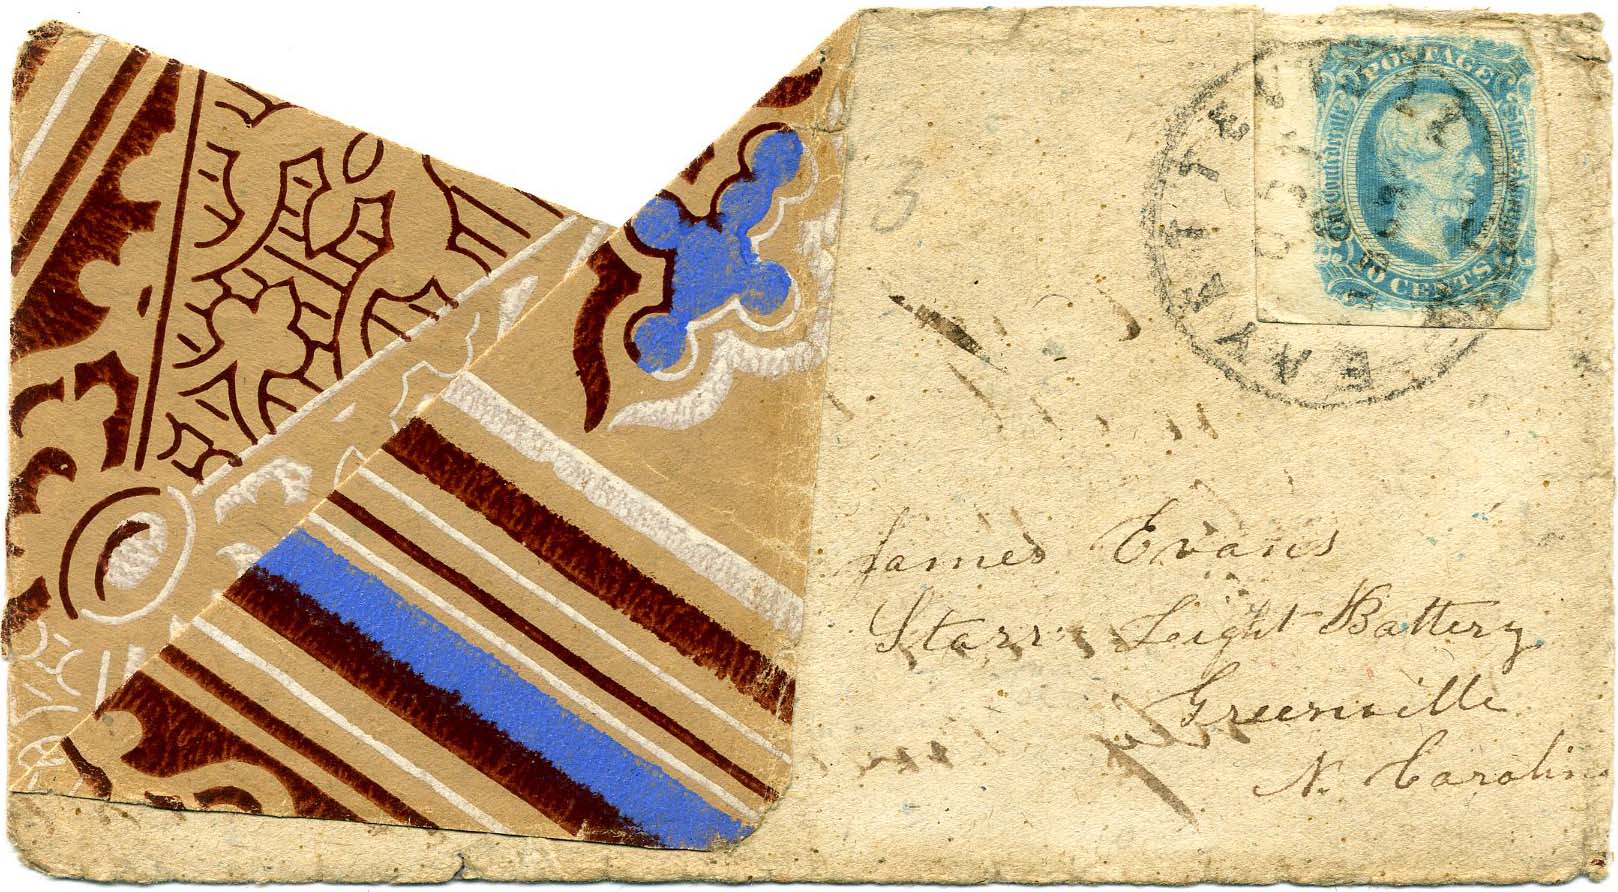 POSTAGE
The Confederate States of America
10 CENTS
FAYETTEVILLE
James Evans
Starr's Light Battery
Greenville
N. Carolina